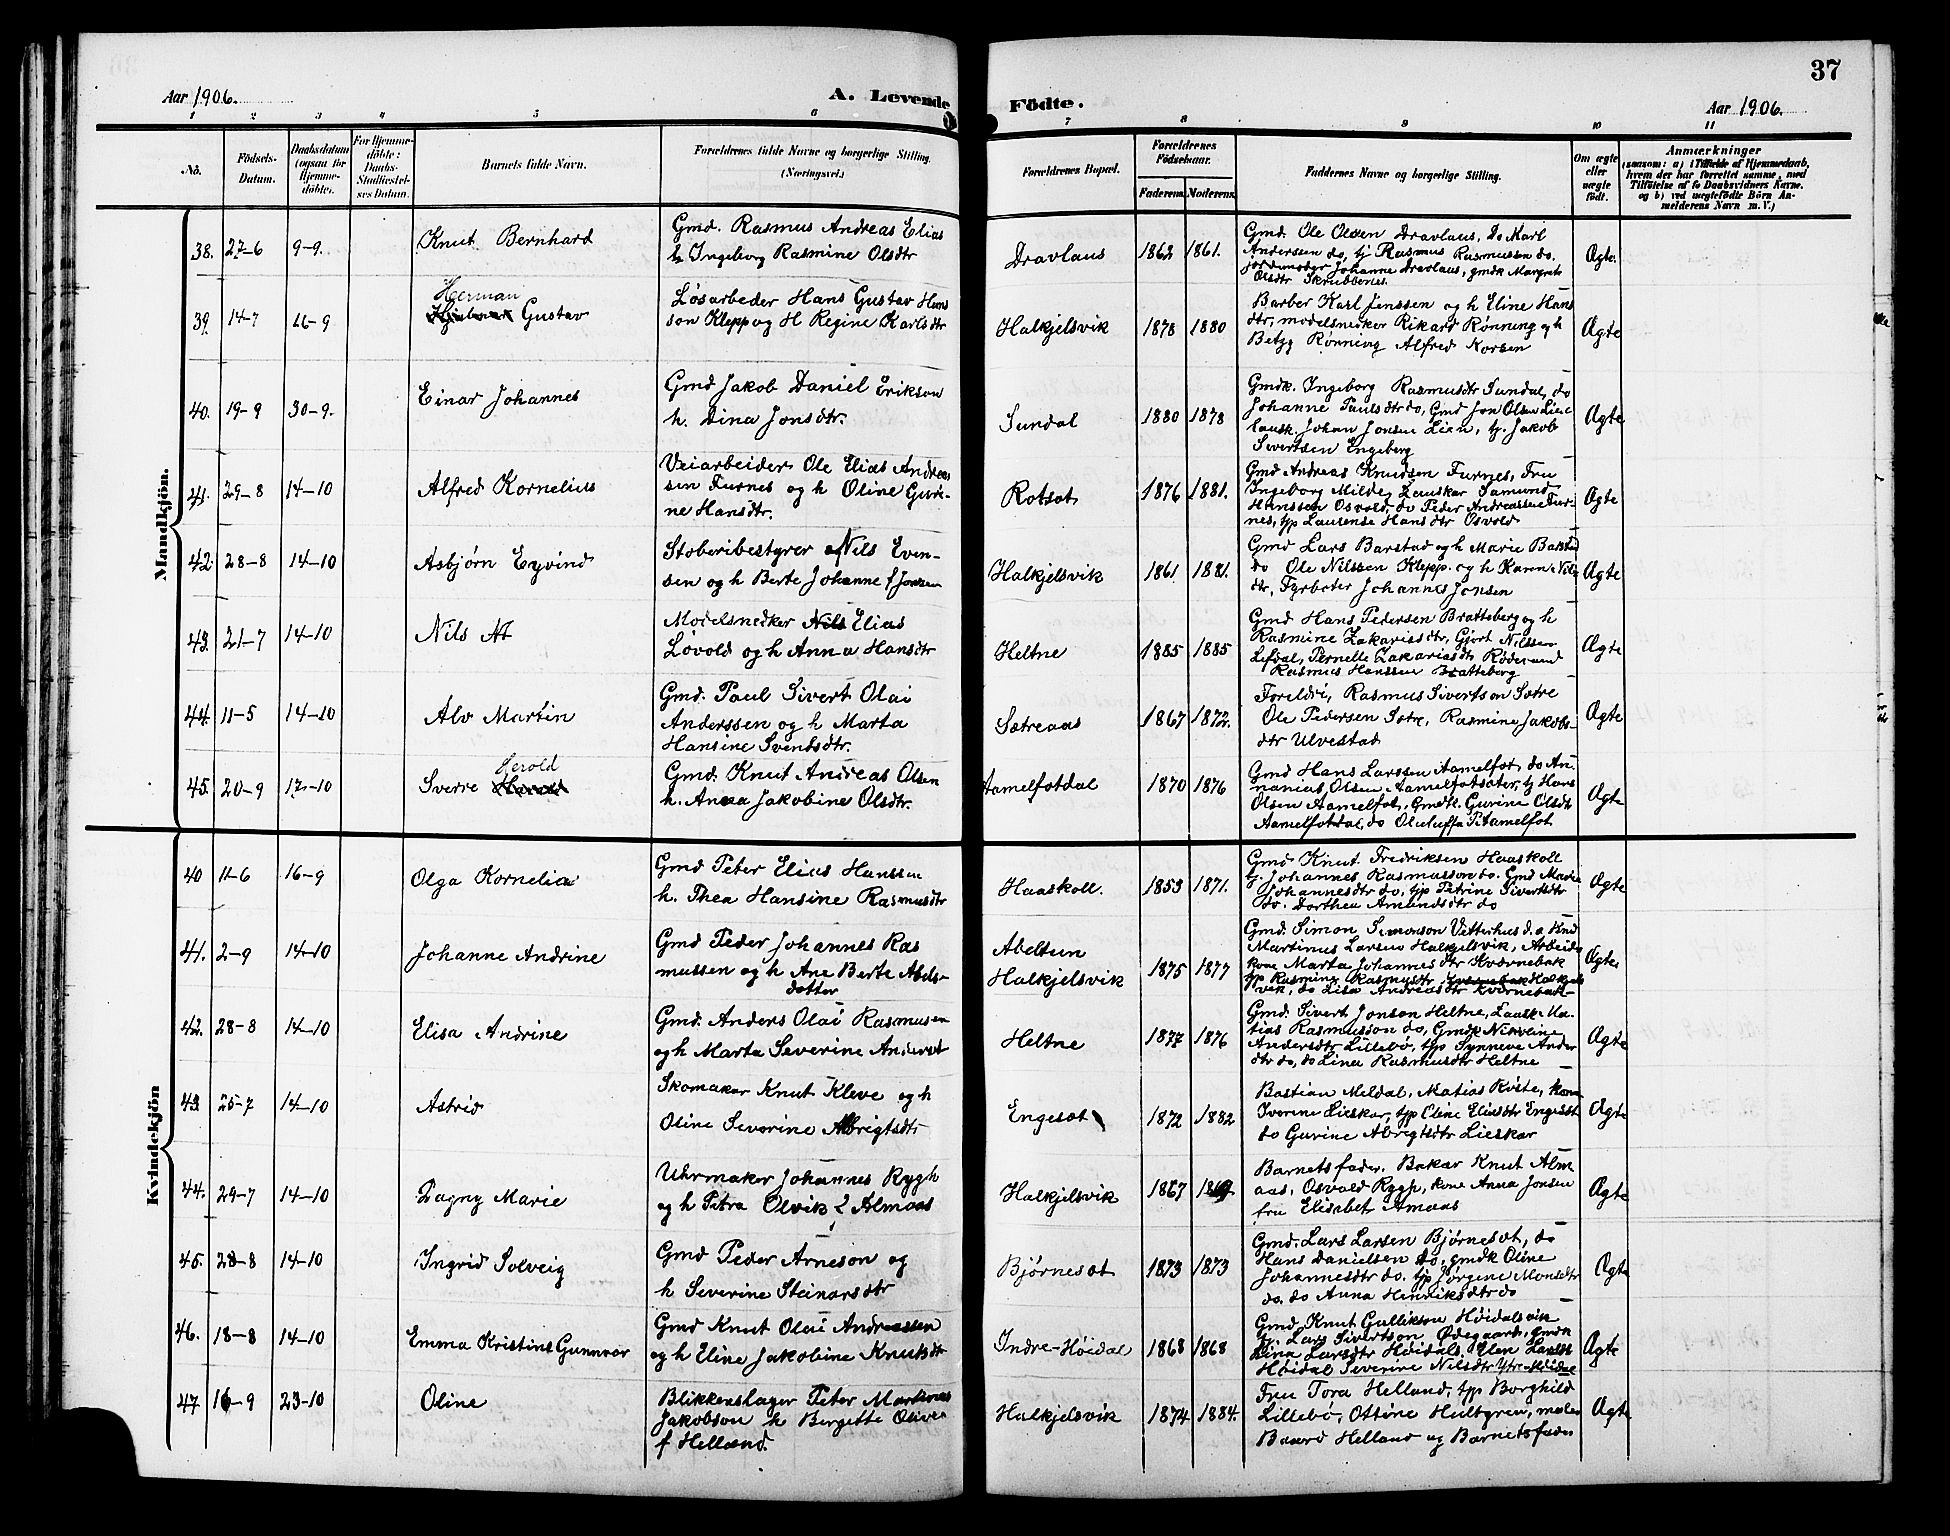 Aar 1906.
A. Levende
Födte.
Aar 1906.
37
1 2 3 4 5 6 7 8 9 10 11
No.
Födsels-
Datum.
Daabsdatum
(ogsaa for
Hjemme-
döbte).
For Hjemme-
döbte:
Daabs-
Stadfæstel-
ses Datum.
Barnets fulde Navn.
Forældrenes fulde Navne og borgerlige Stilling.
(Næringsvei.)
Forældrenes Bopæl.
Forældrenes
Fødselsaar.
Faderens. Moderens.
Faddernes Navne og borgerlige Stilling.
Om ægte
eller
uægte
født.
Anmærkninger
(saasom: a) i Tilfælde af Hjemmedaab,
hvem der har forrettet samme, med
Tilføielse af to Daabsvidners Navne.
og b) ved uægtefødte Börn An-
melderens Navn m. V.)
Mandkjön.
38. 27-6 9-9. Knut Bernhard
Gmd. Rasmus Andreas Elias
h Ingeborg Rasmine Olsdtr
Dravlaus 1862 1861.
Gmd. Ole Olsen Dravlaus, Do Karl
Andersen do, tj Rasmus Rasmussen do.
jordmoder Johanne Dravlaus, gmdk Margrete
Olsdtr Skrubbenes.
Ægte.
39. 14-7 16-9
Herman
Hjalmar Gustav
Løsarbeder Hans Gustav Hans
son Klepp og H Regine Karlsdtr
Halkjelsvik 1878 1880
Barber Karl Jenssen og h Eline Hans
dtr, modelsnedker Rikard Rønning og h
Betzy Rønning Alfred Korsen
Ægte
40. 19-9 30-9. Einar Johannes
Gmd Jakob Daniel Erikson
h. Dina Jonsdtr.
Sundal 1880 1878
Gmdk. Ingeborg Rasmusdtr Sundal, do
Johanne Paulsdtr do, Gmd Jon Olsen Lien
lausk. Johan Jonsen Lien, tj. Jakob
Sivertsen Engeberg
Ægte
41. 29-8 14-10 Alfred Kornelius
Veiarbeider Ole Elias Andreas
sen Furnes og h Oline Guri-
ne Hansdtr.
Rotsæt 1876 1881.
Gmd Andreas Knudsen Furnes, Fru
Ingeborg Milde, Lauskar Samund
Hanssen Osvold, do Peder Andreassen Fur-
nes, tjp Laurense Hansdtr Osvold
Ægte
42. 28-8 14-10 Asbjørn Eyvind
Støberibestyrer Nils Even-
sen og h Berte Johanne f Jonsen
Halkjelsvik 1861 1881.
Gmd Lars Barstad og h Marie Barstad
do Ole Nilssen Klepp. og h Karen Nils
dtr, Fyrbøter Johannes Jonsen
Ægte
43. 21-7 14-10 Nils At
Modelsnedker Nils Elias
Løvold og h Anna Hansdtr
Heltne 1885 1885
Gmd Hans Pedersen Bratteberg og h
Rasmine Zakariasdtr, Gjert Nilssen
Lefdal, Pernelle Zakariasdtr
Rasmus Hanssen Bratteberg
Ægte
44. 11-5 14-10 Alv Martin
Gmd. Paul Sivert Olai
Anderssen og h Marta
Hansine Sventsdtr.
Sætreaas 1867 1872.
Foreldre, Rasmus Sivertson Sætre
Ole Pedersen Sætre, Rasmine Jakobs-
dtr Ulvestad
Ægte
45. 20-9 17-10
Herold
Sverre Harald
Gmd. Knut Andreas Olsen
h. Anna Jakobine Olsdtr.
Aamelfotdal 1870 1876
Gmd Hans Larssen Aamelfot, do An-
nanias Olsen Aamelfotsæter, tj Hans
Olsen Aamelfot, Gmdk. Gurine Olsdtr
Aamelfotdal, do Oluluffa P. Aamelfot
Ægte
Kvindekjön
40 11-6 16-9 Olga Kornelia
Gmd Peter Elias Hanssen
h. Thea Hansine Rasmusdtr
Haaskoll. 1853 1871.
Gmd Knut Fredriksen Haaskoll
tj. Johannes Rasmusson do. Gmd Marie
Johannesdtr do, tjp Petrine Sivertsdtr
do. Dorthea Amundsdtr do
Ægte
41. 2-9 14-10 Johanne Andrine
Gmd Peder Johannes Ras
mussen og h Ane Berte Abels-
datter
Abeltun
Halkjelsvik 1875 1877
Gmd. Simon Simonson Vetterhus
Martinus Larsen Halkjelsvik, Arbeids
kone Marta Johannesdtr Kvernebak
tjp Rasmine Rasmusdtr Halkjels
vik, do Lisa Andreasdtr Kvernebak
Ægte
42. 28-8 14-10 Elisa Andrine
Gmd. Anders Olai Rasmusen
og h Marta Severine Andersdtr
Heltne 1877 1876
Gmd. Sivert Jonson Heltne, Lausk. Ma-
tias Rasmusson do, Gmdk Nikoline
Andersdtr Lillebø, tjp Synneve Anders
dtr do, do Lina Rasmusdtr Heltne
Ægte
43 25-7 14-10 Astrid
Skomaker Knut Kleve og h
Oline Severine Abrigtsdtr
Engeset 1872 1882
Bastian Meldal, Matias Røste, kone
Iverine Lieskar, tjp Oline Eliasdtr Engeset
do Gurine Abrigtsdtr Lieskar
Ægte
44. 29-7 14-10 Dagny Marie
Uhrmaker Johannes Rygh
og h Petra Olvik f Almaas
Halkjelsvik 1867
Barnets fader. Bakar Knut Alm
aas, Osvald Rygh, kone Anna Jonsen
fru Elisabet Amaas
Ægte
45. 28-8 14-10 Ingrid Solveig
Gmd Peder Arneson og
h Severine Steinarsdtr
Bjørneset 1873 1873
Gmd. Lars Larsen Bjørneset, do
Hans Danielsen do, gmdk Oline
Johannesdtr do. tjp Jørgine Monsdtr
do. do Anna Henriksdtr do
Ægte
46. 18-8 14-10 Emma Kristine Gunnvor
Gmd Knut Olai Andreassen
og h Eline Jakobine Knutsdtr
Indre-Høidal 1868 1868
Gmd. Knut Gullikson Høidalsvik
tj. Lars Sivertson Ødegaard, gmdk
Dina Larsdtr Høidal, Elen Larsdtr
Høidal Severine Nilsdtr Ytre-Høidal
Ægte
47 16-9 23-10 Oline
Blikkenslager Peter Martinus
Jakobson h Bergitte Olive
f Helland.
Halkjelsvik 1874 1884.
Fru Tora Helland, tjp Borghild
Lillebø, Ottine Hultgren, maler
Baard Helland og Barnets fader
Ægte